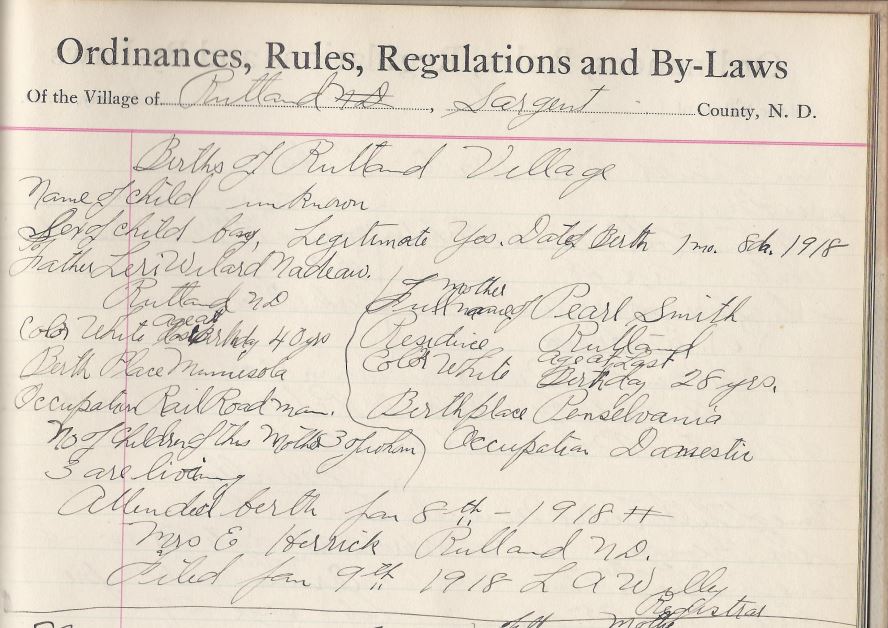 Ordinances, Rules, Regulations and By-Laws
Of the Village of Rutland ND, Sargent County, N. D.
Births of Rutland Village
Name of child unknown
Sex of child boy, Legitimate Yes. Date of Birth 1 mo. 8th. 1918
Father Leri Wilard Nadeau.
Rutland ND
Full name of mother Pearl Smith
Color White age at last Birthday 40 yrs
Residince Rutland
Color White age at Last Birthday 28 yrs.
Birth Place Minnesota
Occupation Rail Road man.
Birthplace Penselvania
No of Children of this Mother 3 of whom
Occupation Domestic
3 are living
Attended berth Jan 8th - 1918
Mrs E Herrick Rutland ND.
Filed Jan 9th 1918 L A
Registrar
Mother